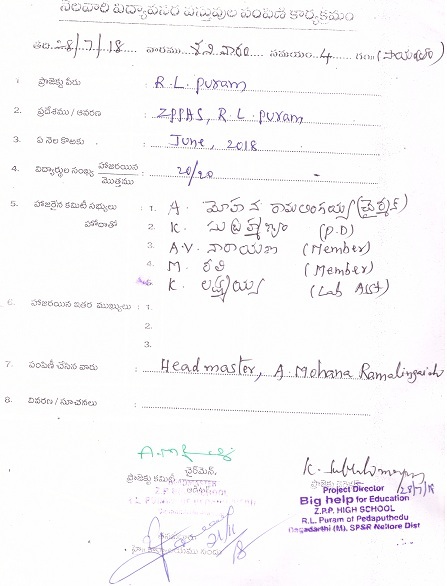 నెలవారీ విద్యావసర వస్తువుల పంపిణీ కార్యక్రమం
తేది: 28/7/18 వారము శనివారం సమయం: 4 గం॥ (సాయంత్రం)
1. ప్రాజెక్టు పేరు : R.L. Puram
2. ప్రదేశము / ఆవరణ : ZPPHS, R L Puram
3. ఏ నెల కొఱకు : June, 2018
4. విద్యార్థుల సంఖ్య హాజరయిన / మొత్తము : 20/20
5. హాజరైన కమిటీ సభ్యులు : 1. A. మోహన రామలింగయ్య (చైర్మన్)
హోదాతో 2. K. సుబ్రహ్మణ్యం (P.D)
3. A.V. నారాయణ (Member)
4. M. రవి (Member)
K. లక్ష్మయ్య (Lab Asst)
6. హాజరయిన ఇతర ముఖ్యులు : 1.
2.
3.
7. పంపిణీ చేసిన వారు : Headmaster, A. Mohana Ramalingaiah
8. వివరణ / సూచనలు :
చైర్‌మెన్,
ప్రాజెక్టు కమిటీ
K. Subrahmanyam
28/7/18
Project Director
Big help for Education
Z.P.P. HIGH SCHOOL
R.L. Puram of Pedaputhedu
Dagadarthi (M), SPSR Nellore Dist